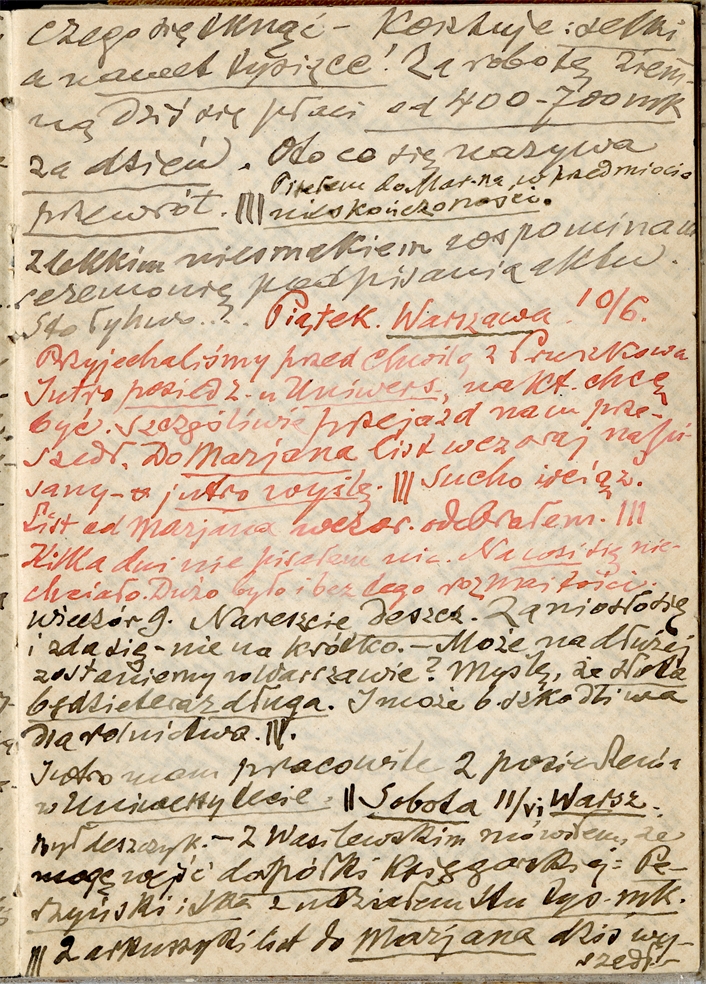 czego się tknąć – Kosztuje: setki
a nawet tysiące! Za robotę ziem-
ną dziś się płaci od 400-700 mk
za dzień. Oto co się nazywa
przewrót. ||| Pisałem do Mar-na w przedmiocie
nieskończoności.
Z lekkim niesmakiem wspominam
ceremonię podpisania aktu.
Sto tylko...
Piątek. Warszawa. 10/6.
Przyjechaliśmy przed chwilą z Pruszkowa
Jutro posiedz. u Uniwers., na kt. chcę
być. Szczęśliwie przejazd nam prze-
szedł. Do Marjana list wczoraj napi-
sany – jutro wyślę. ||| Sucho wciąż.
List od Marjana wczor. odebrałem. |||
Kilka dni nie pisałem nic. Na wsi się nie-
chciało. Dużo było i bez tego rozmaitości.
Wieczór 9. Nareszcie deszcz. Zaniosło się
i zda się – nie na krótko. – Może na dłużej
zostaniemy w Warszawie? Myślę, że słota
będzie teraz długa. I może b. szkodliwa
dla rolnictwa. |||.
Jutro mam pracowite 2 posiedzenia
w Uniwersytecie. || Sobota 11/VI Warsz.
Był deszczyk. – Z Wasilewskim mówiłem, że
mogę wejść do spółki księgarskiej: Pe-
rzyński i Ska z udziałem stu tys. mk.
||| 2 arkuszyki list do Marjana dziś wy-
szedł –